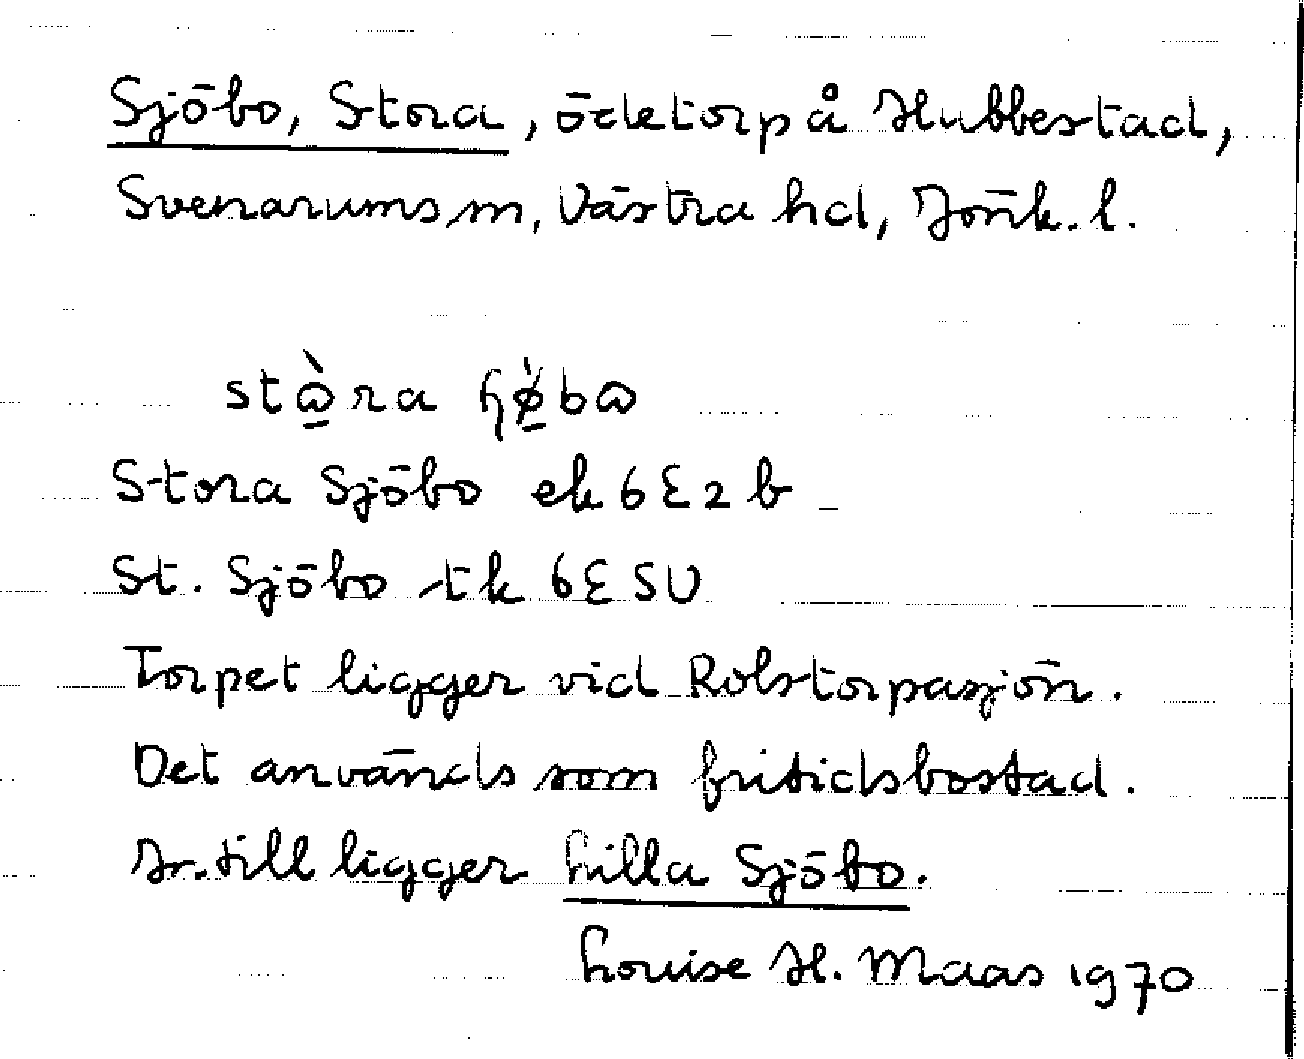 Sjöbo, Stora, ödetorp å Hubbestad,
Svenarums sn, Västra hd, Jönk. l.
stɷ̠̀ra ɧø̠̀bɷ
Stora Sjöbo ek 6E2b
St. Sjöbo tk 6E SV
Torpet ligger vid Rolstorpasjön.
Det används som fritidsbostad.
Intill ligger Lilla Sjöbo.
Louise H. Maas 1970